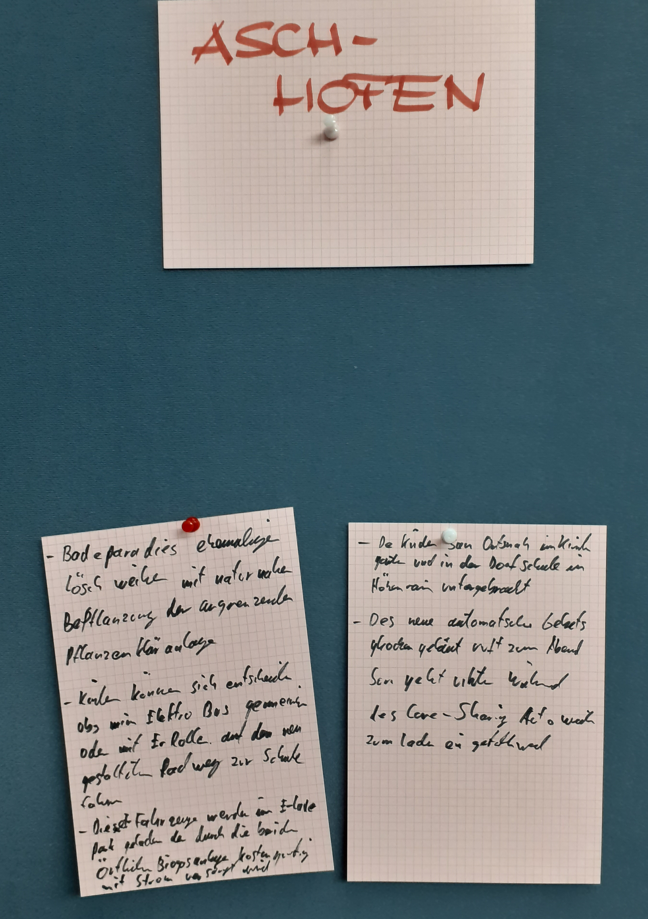 ASCH-
HOFEN
- Badeparadies ehemalige
Lösch weiher mit naturnaher
Bepflanzung der angrenzenden
Pflanzenkläranlage
- Kinder können sich entscheiden
obs mim Elektro Bus gemeinsam
oder mit Er Roller auf den neu
gestalteten Radweg zur Schule
fahren
- Diese Fahrzeuge werden im E-Lade
Park geladen de durch die beiden
Örtlichen Biogasanlage kostengünstig
mit Strom versorgt wird
- De Kinder san Ortsnah im Kinder
garten und in der Dorf Schule in
Höhenrain untergebracht
- Des neue automatische Gebets
glocken geläut ruft zum Abend
Sun geht unter während
des Care-Sharing Auto
zum laden